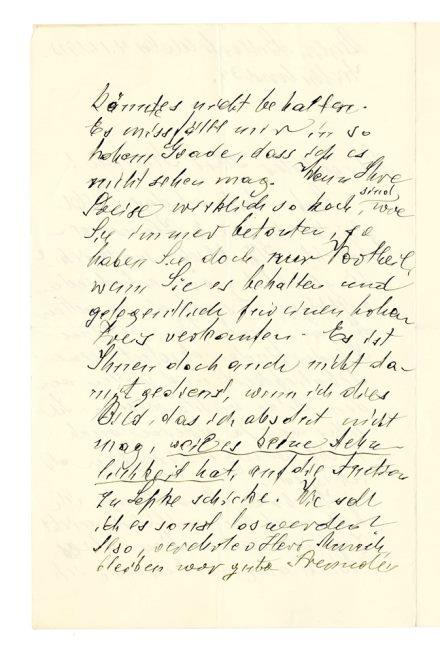 könntes nicht behalten.
Es missfällt mir in so
hohem Grade, dass ich es
nicht sehen mag. Wenn Ihre
Preise wirklich so hoch, sind wie
Sie immer betonten, so
haben Sie doch nur Vortheil,
wenn Sie es behalten und
gelegentlich für einen hohen
Preis verkaufen. Es ist
Ihnen doch auch nicht da-
mit gedient, wenn ich dies
Bild, das ich absolut nicht
mag, weil es keine Aehn-
lichkeit hat, auf die Auction
zu Lepke schicke. Wie soll
ich es sonst loswerden?
Also, verehrter Herr Munch
bleiben wir gute Freunde